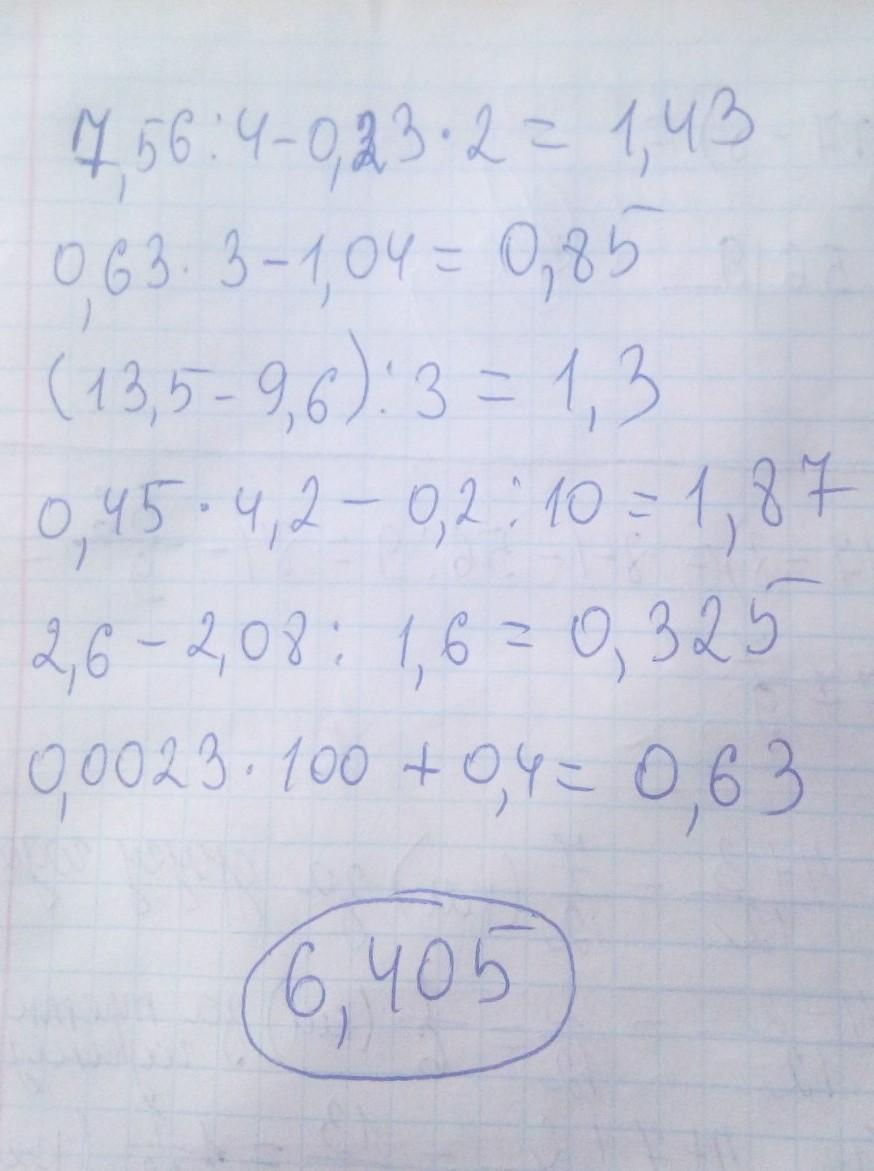 7,56:4-0,23·2= 1,43
0,63·3-1,04= 0,85
(13,5-9,6):3=1,3
0,45·4,2-0,2:10=1,87
2,6-2,08:1,6=0,325
0,0023·100+0,4=0,63
6,405